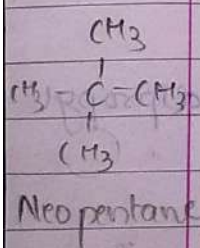 CH3
CH3-C-CH3
CH3
Neopentane